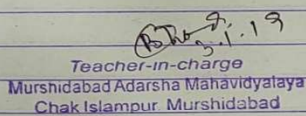 3.1.19
Teacher-in-charge
Murshidabad Adarsha Mahavidyalaya
Chak Islampur Murshidabad